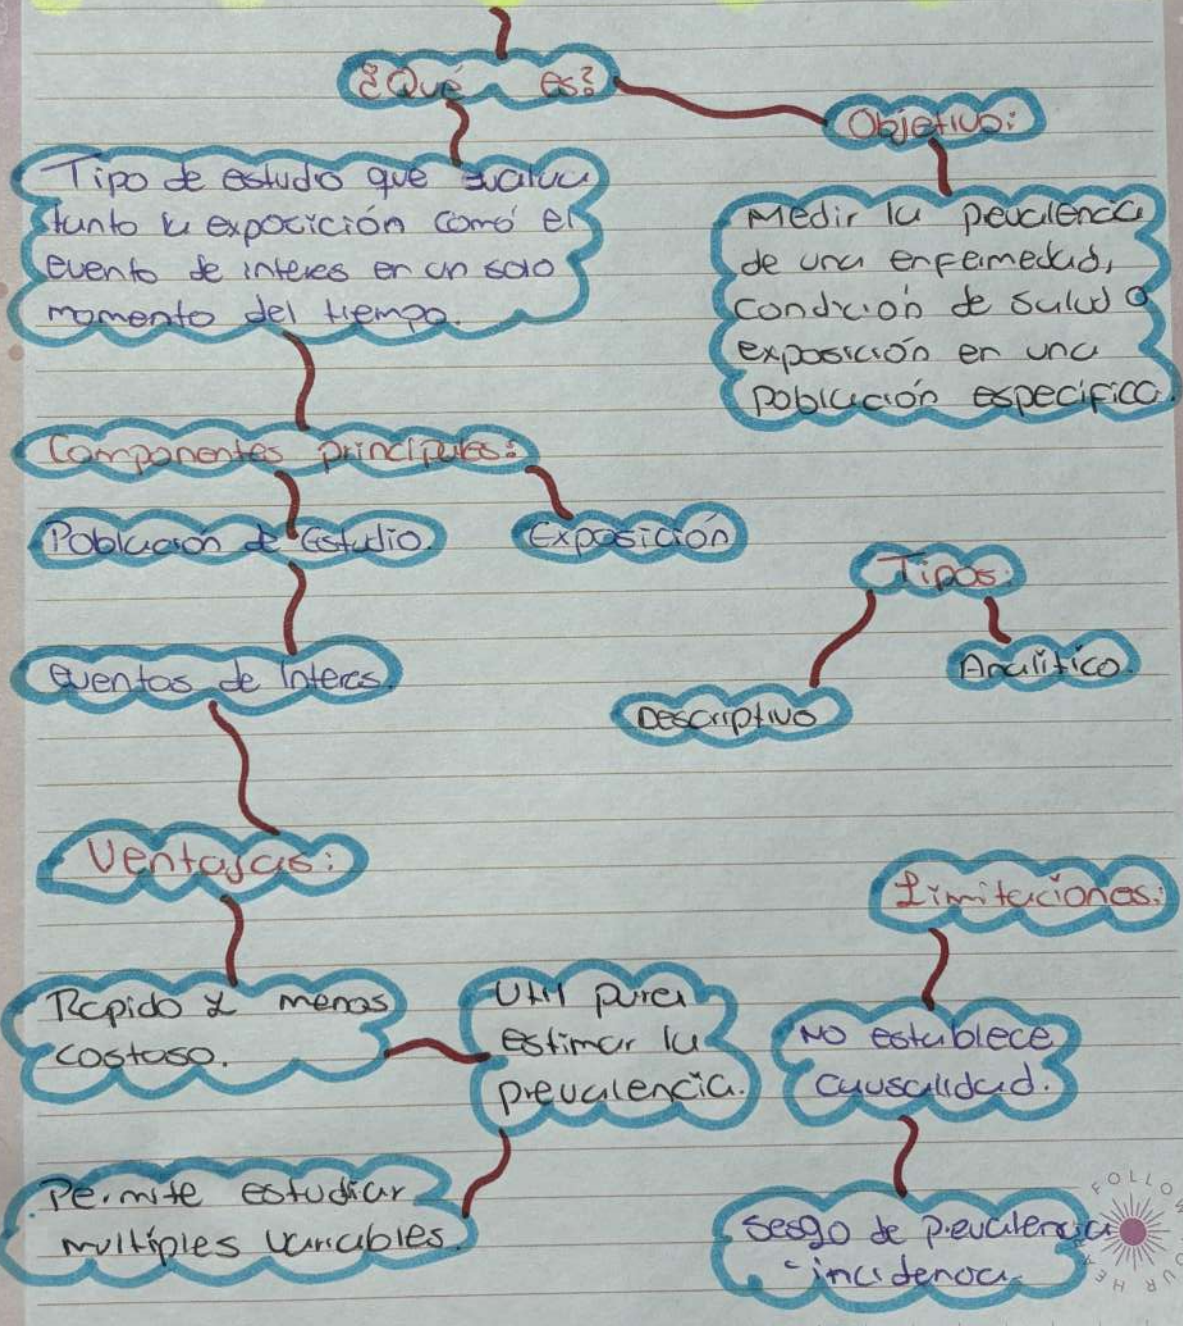 ¿Qué es?
Objetivo:
Tipo de estudio que evalua
tanto la exposición como el
evento de interes en un solo
momento del tiempo.
Medir la prevalencia
de una enfermedad,
condición de salud o
exposición en una
población especifica.
Componentes principales:
Población de Estudio.
Exposición
Tipos:
Eventos de Interes.
Analitico.
Descriptivo
Ventajas:
Limitaciones:
Rapido y menos
costoso.
Util para
estimar la
prevalencia.
No establece
causalidad.
Permite estudiar
multiples variables.
Sesgo de prevalencia
-incidencia.
FOLLOW YOUR HEA